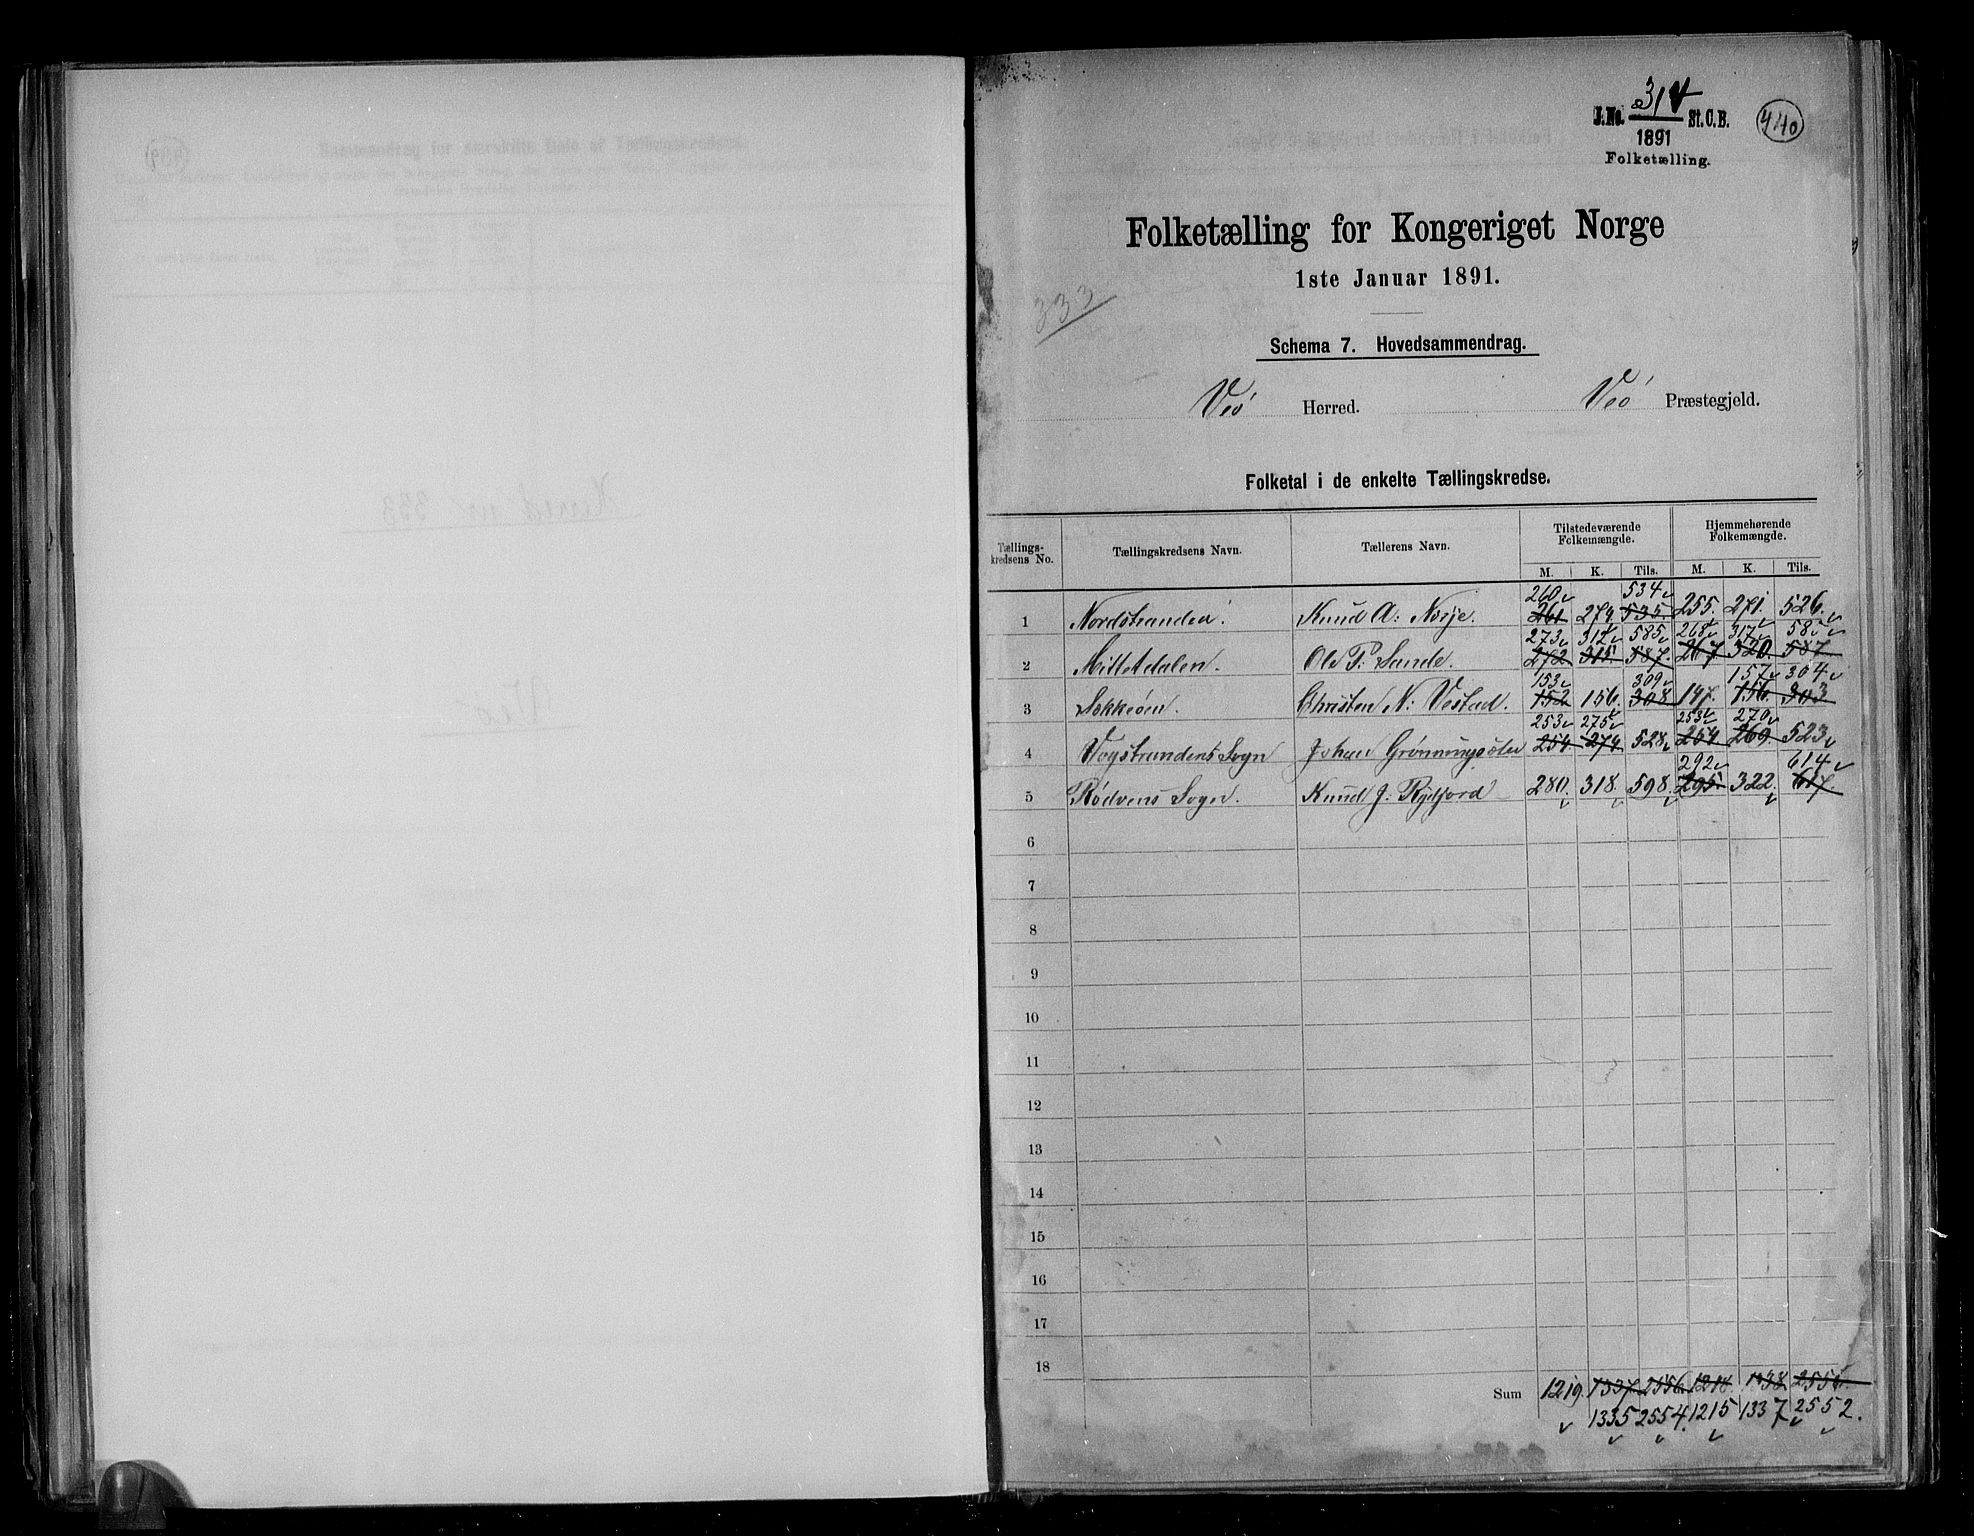 J.No. 314 St.C.B. 440
1891
Folketælling.
Folketælling for Kongeriget Norge
1ste Januar 1891.
333
Schema 7. Hovedsammendrag.
Veö Herred. Veö Præstegjeld.
Folketal i de enkelte Tællingskredse.
Tællings-kredsens No. Tællingskredsens Navn. Tællerens Navn. Tilstedeværende Folkemængde. Hjemmehørende Folkemængde.
M. K. Tils. M. K. Tils.
260 534
1 Nordstranden Knud A: Norje. 261 274 535. 255. 271. 526.
273 312 585 268 317 585
2 Mittetdalen. Ole P: Sande. 272 315 587. 267 320. 587
153 309 157 304
3 Sekkeöen. Christen N: Vestad. 152 156. 308 147. 156 303
253 275 253 270
4 Vogstrandens Sogn Johan Grönningsæter 254. 274 528. 254 269. 523
292 614
5 Rödvens Sogn. Knud J. Rydjord 280. 318. 598. 295. 322. 617.
6
7
8
9
10
11
12
13
14
15
16
17
18
Sum 1219. 1337. 2556. 1218. 1338. 2556.
1335 2554. 1215 1337 2552.